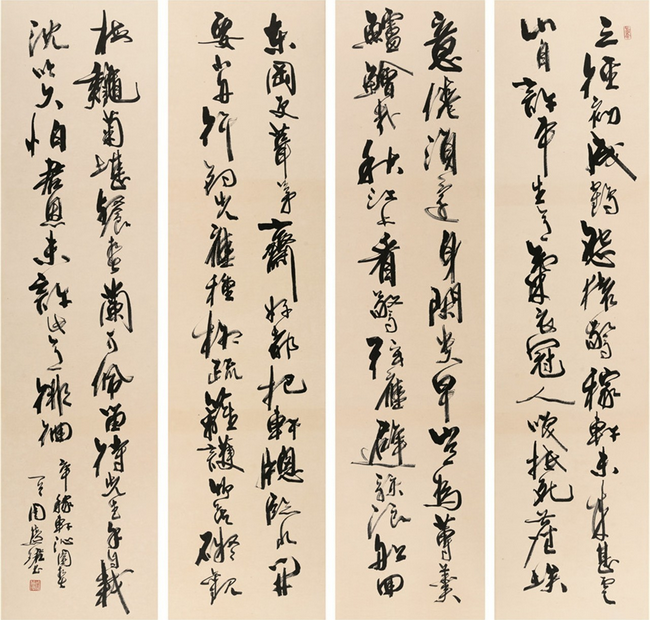 三徑初成鶴怨猿驚稼軒未來甚雲
山自許平生意氣衣冠人笑抵死塵埃
意倦須還身閑貴早豈為蓴羹
鱸鱠哉秋江上看驚弦雁避駭浪船回
東岡更葺茅齋好都把軒牕臨水開
要小舟行釣先應種柳疏籬護竹莫礙觀
梅秋菊堪餐春蘭可佩留待先生手自栽
沈吟久怕君恩未許此意徘徊
辛稼軒沁園春
一首周慧珺書